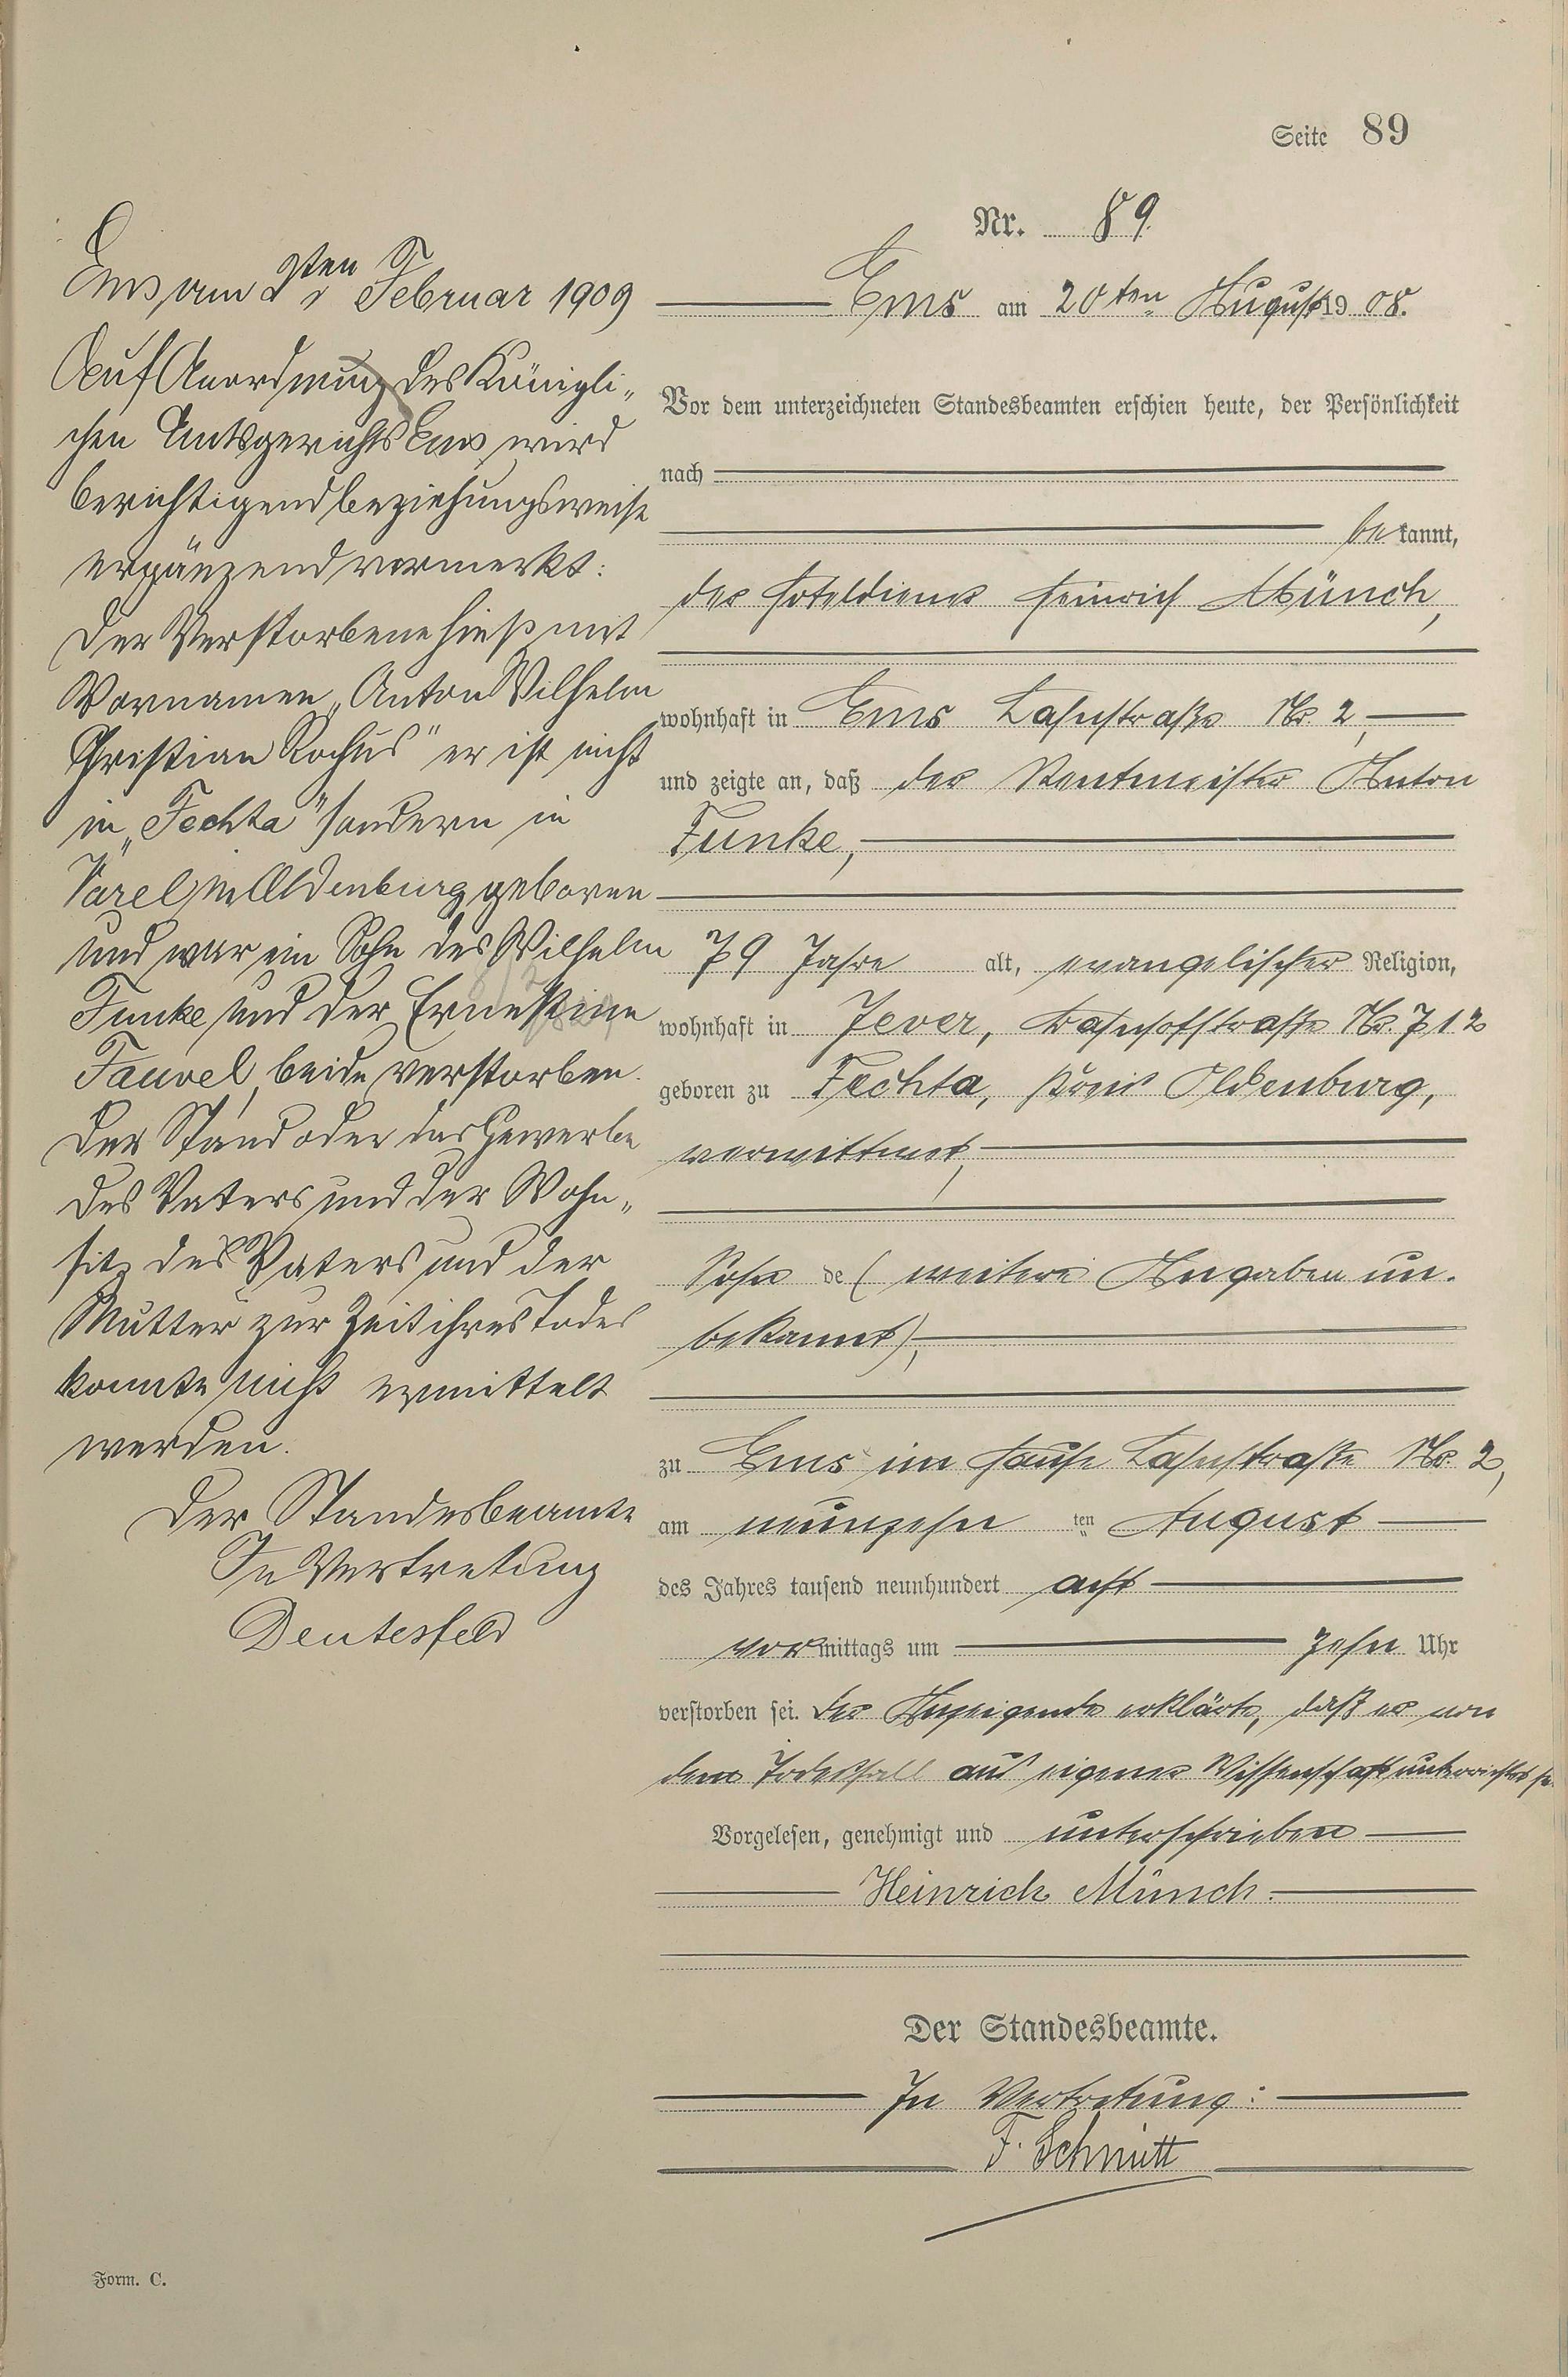 Seite 89
Nr. 89.
Ems am 20ten August 1908.
Vor dem unterzeichneten Standesbeamten erschien heute, der Persönlichkeit
nach
bekannt,
der Hoteldiener Heinrich Münch,
wohnhaft in Ems Lahnstraße Nr 2,
und zeigte an, daß der Rentmeister Anton
Funke,
79 Jahre alt, evangelischer Religion,
wohnhaft in Jever, Bahnhofstraße Nr. 712
geboren zu Fechta, Kreis Oldenburg,
verwittwet,
Sohn de ( weitere Angaben un-
bekannt),
zu Ems im Hause Lahnstraße Nr. 2,
am neunzehn ten August
des Jahres tausend neunhundert acht
vormittags um zehn Uhr
verstorben sei. Der Anzeigende erklärte, daß er von
dem Todesfall aus eigener Wissenschaft unterrichtet sei.
Vorgelesen, genehmigt und unterschrieben
Heinrich Münch.
Der Standesbeamte.
In Vertretung:
F. Schmitt
Ems am ten Februar 1909
Auf Anordnung des Königli„
chen Amtsgerichts Ems wird
berichtigend beziehungsweise
ergänzend vermerkt:
Der Verstorbene hieß mit
Vornamen „Anton Wilhelm
Christian Rochus" er ist nicht
in „Fechta" sondern in
Varel in Oldenburg geboren
und war ein Sohn des Wilhelm
Funke und der Ernestine
Fauvel, beide verstorben.
Der Stand oder das Gewerbe
des Vaters und der Wohn„
sitz des Vaters und der
Mutter zur Zeit ihres Todes
konnte nicht ermittelt
werden.
Der Standesbeamte
In Vertretung
Deutesfeld
Form. C.